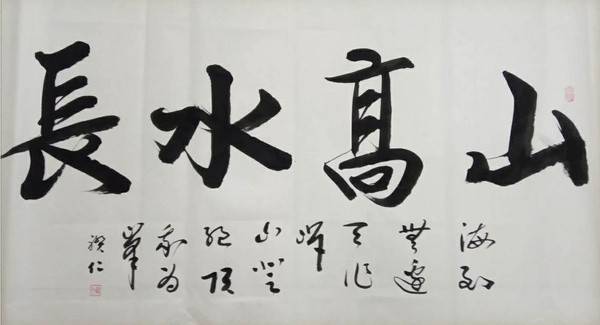 山高水長
海到
無邊
天作
岸
山登
絕頂
我為
峯
仁